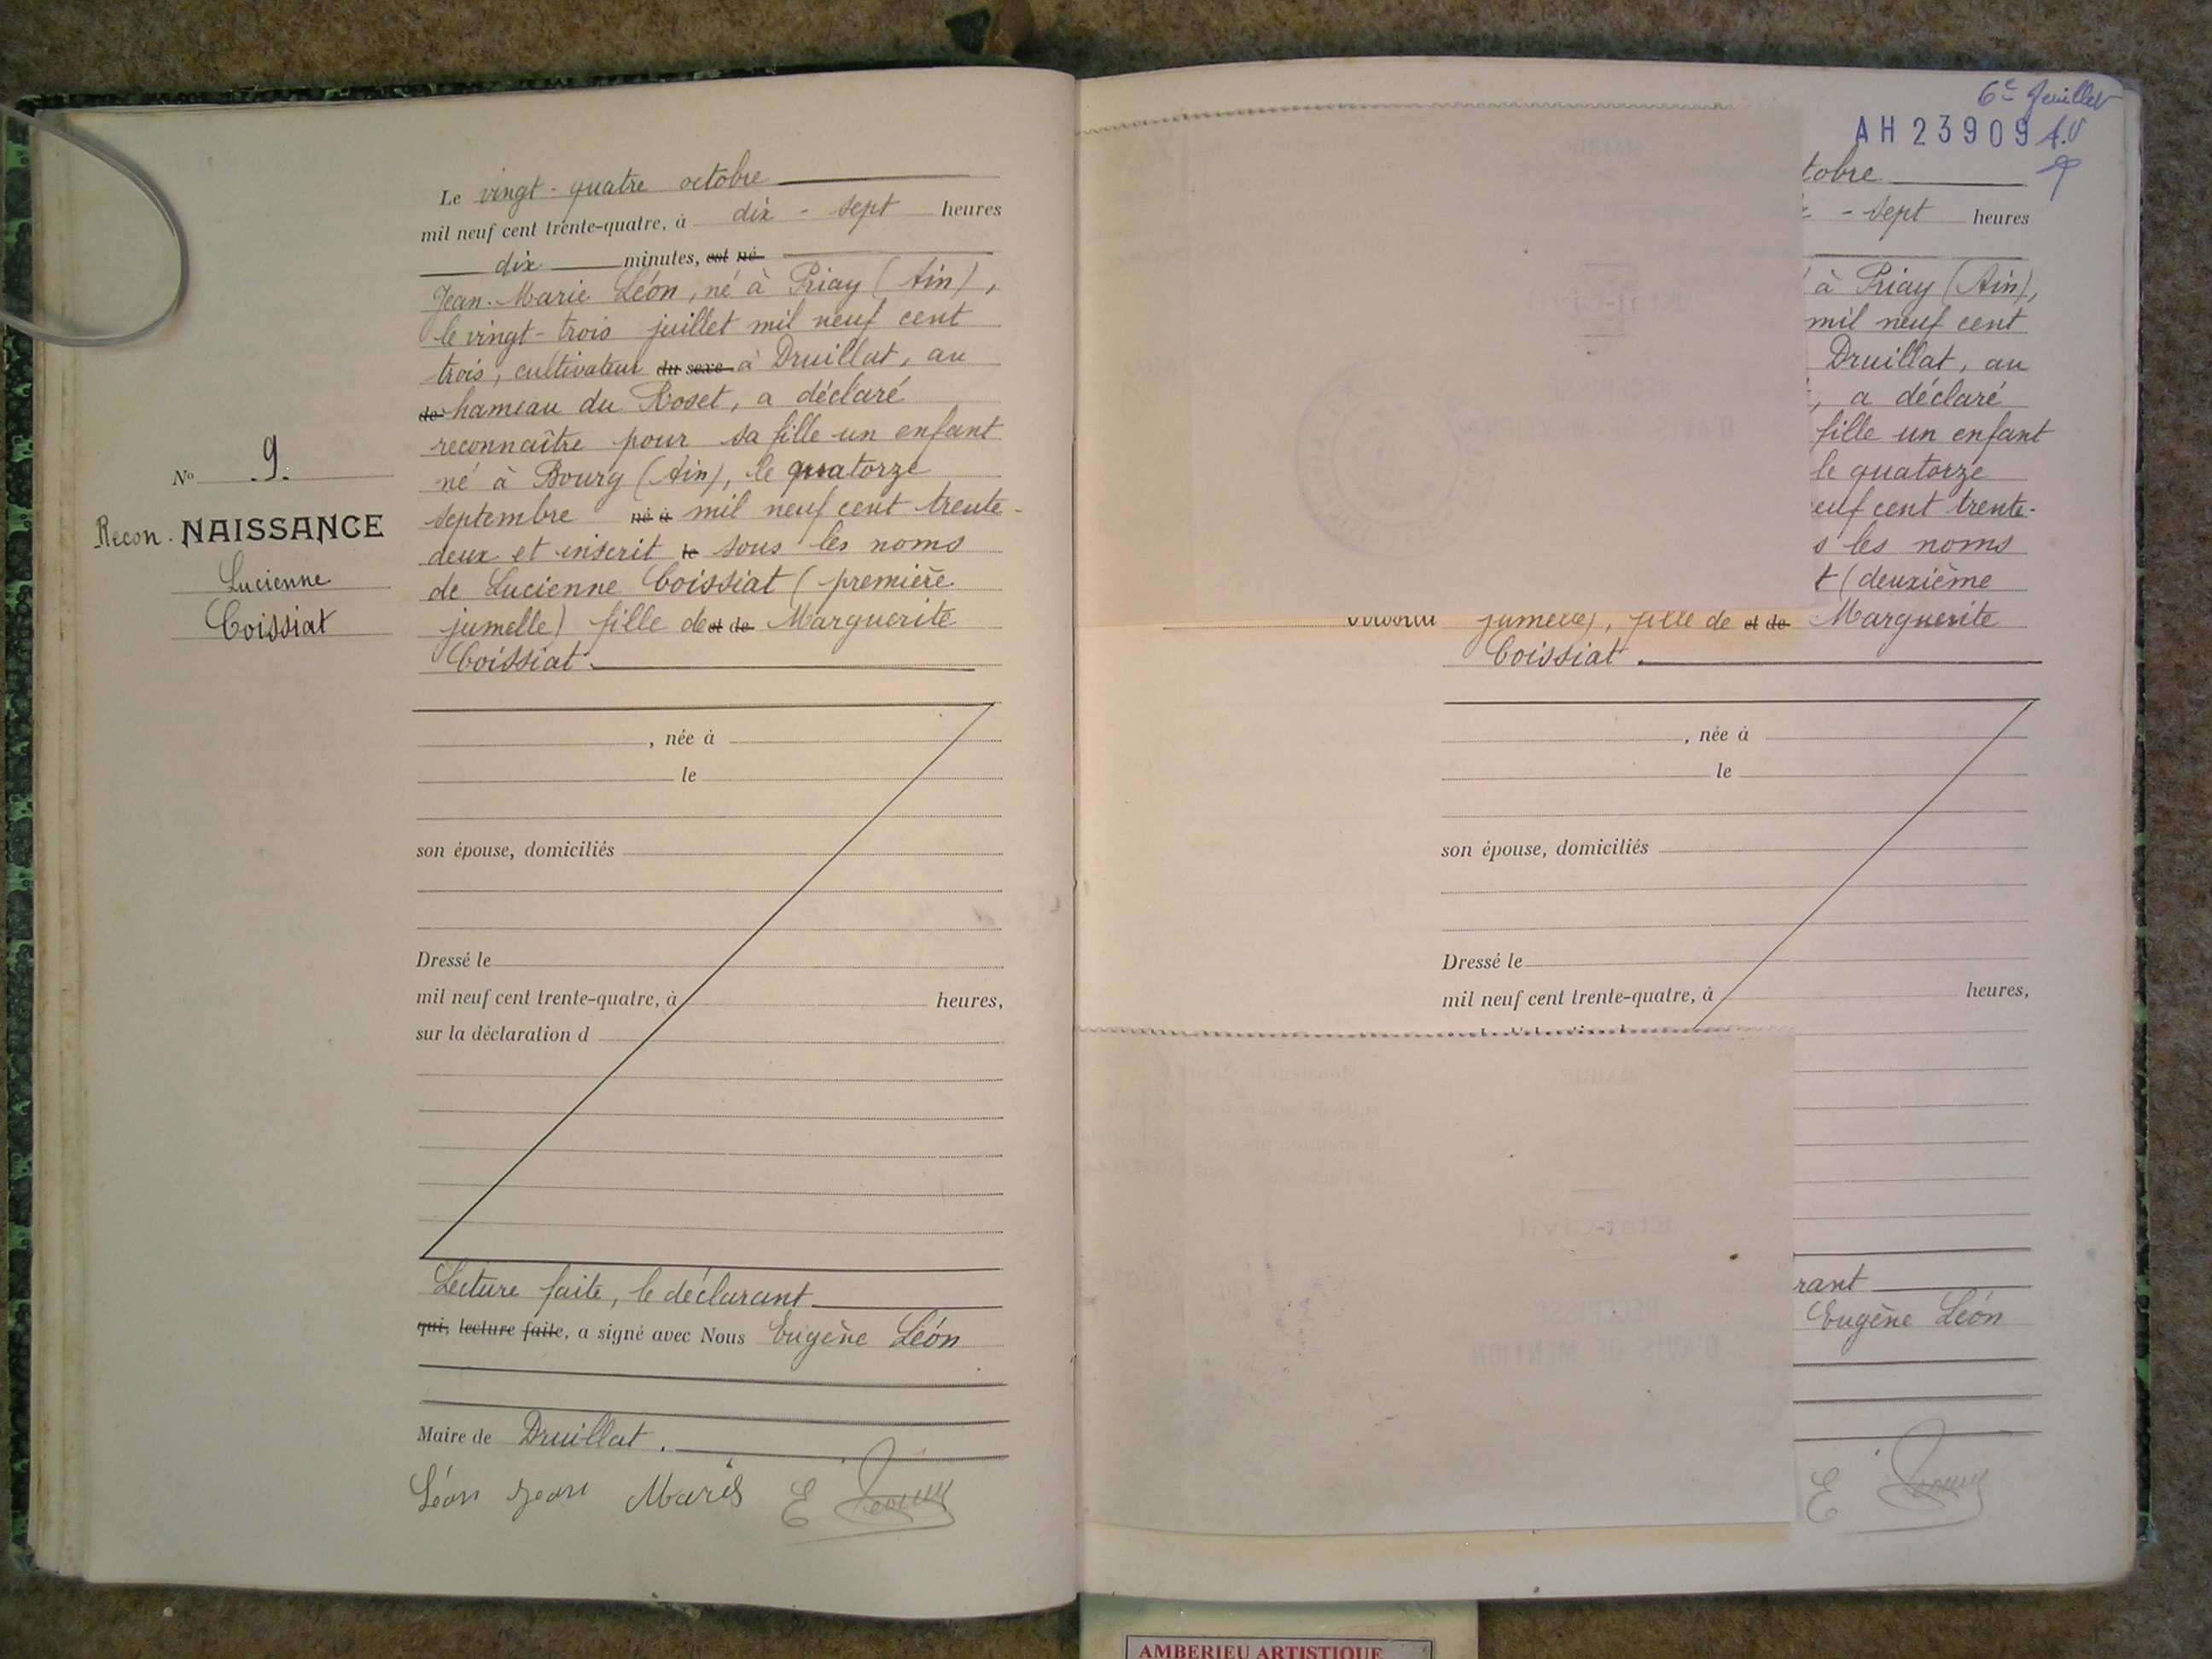 Le vingt-quatre octobre
mil neuf cent trente-quatre, à dix-sept heures
dix minutes, est né
Jean-Marie Léon, né à Priay (Ain),
le vingt-trois juillet mil neuf cent
trois, cultivateur du sexe à Druillat, au
de hameau du Roset, a déclaré
reconnaître pour sa fille un enfant
né à Bourg (Ain), le quatorze
septembre né à mil neuf cent trente-
deux et inscrit le sous les noms
de Lucienne Coissiat (première
jumelle) fille de et de Marguerite
Coissiat.
No 9.
Recon. NAISSANCE
Lucienne
Coissiat
, née à
le
son épouse, domiciliés
Dressé le
mil neuf cent trente-quatre, à heures,
sur la déclaration d
Lecture faite, le déclarant
qui, lecture faite, a signé avec Nous Eugène Léon
Maire de Druillat.
Léon Jean Marie E Léon
6e feuillet
AH 23909
tobre
-sept heures
à Priay (Ain),
mil neuf cent
Druillat, au
, a déclaré
fille un enfant
le quatorze
euf cent trente-
s les noms
t (deuxième
jumelle), fille de et de Marguerite
Coissiat.
, née à
le
son épouse, domiciliés
Dressé le
mil neuf cent trente-quatre, à heures,
rant
Eugène Léon
E Léon
AMBERIEU ARTISTIQUE